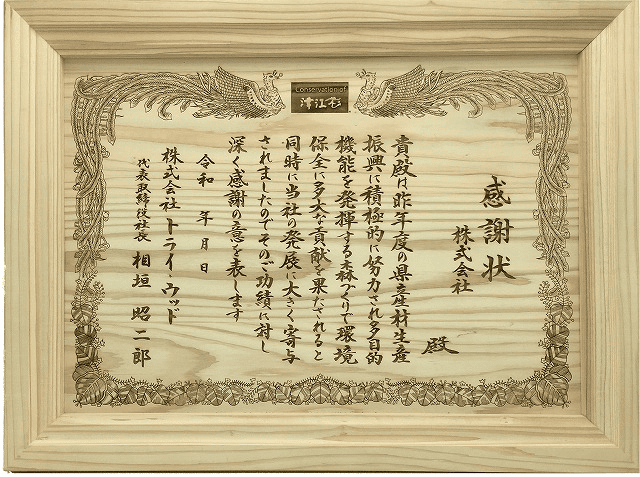 Conservation of
津江杉
感謝状
株式会社
殿
貴殿は昨年度の県産材生産
振興に積極的に努力され多目的
機能を発揮する森づくりで環境
保全に多大な貢献を果たされると
同時に当社の発展に大きく寄与
されましたのでそのご功績に対し
深く感謝の意を表します
令和 年 月 日
株式会社 トライ・ウッド
代表取締役社長 相垣 昭二郎